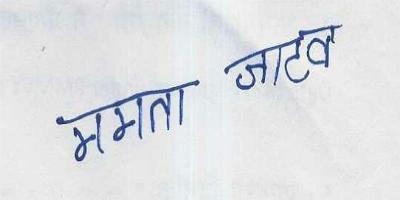 ममता जाटव